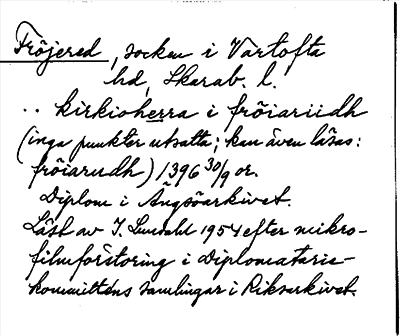 Fröjered, socken i Vartofta
hd, Skarab. l.
.. kirkioherra i fröiariidh
(inga punkter utsatta; kan även läsas:
fröiarudh) 1396 30/9 or.
Diplom i Ängsöarkivet.
Läst av I. Lundahl 1954 efter mikro-
filmförstoring i Diplomatarie-
kommitténs samlingar i Riksarkivet.